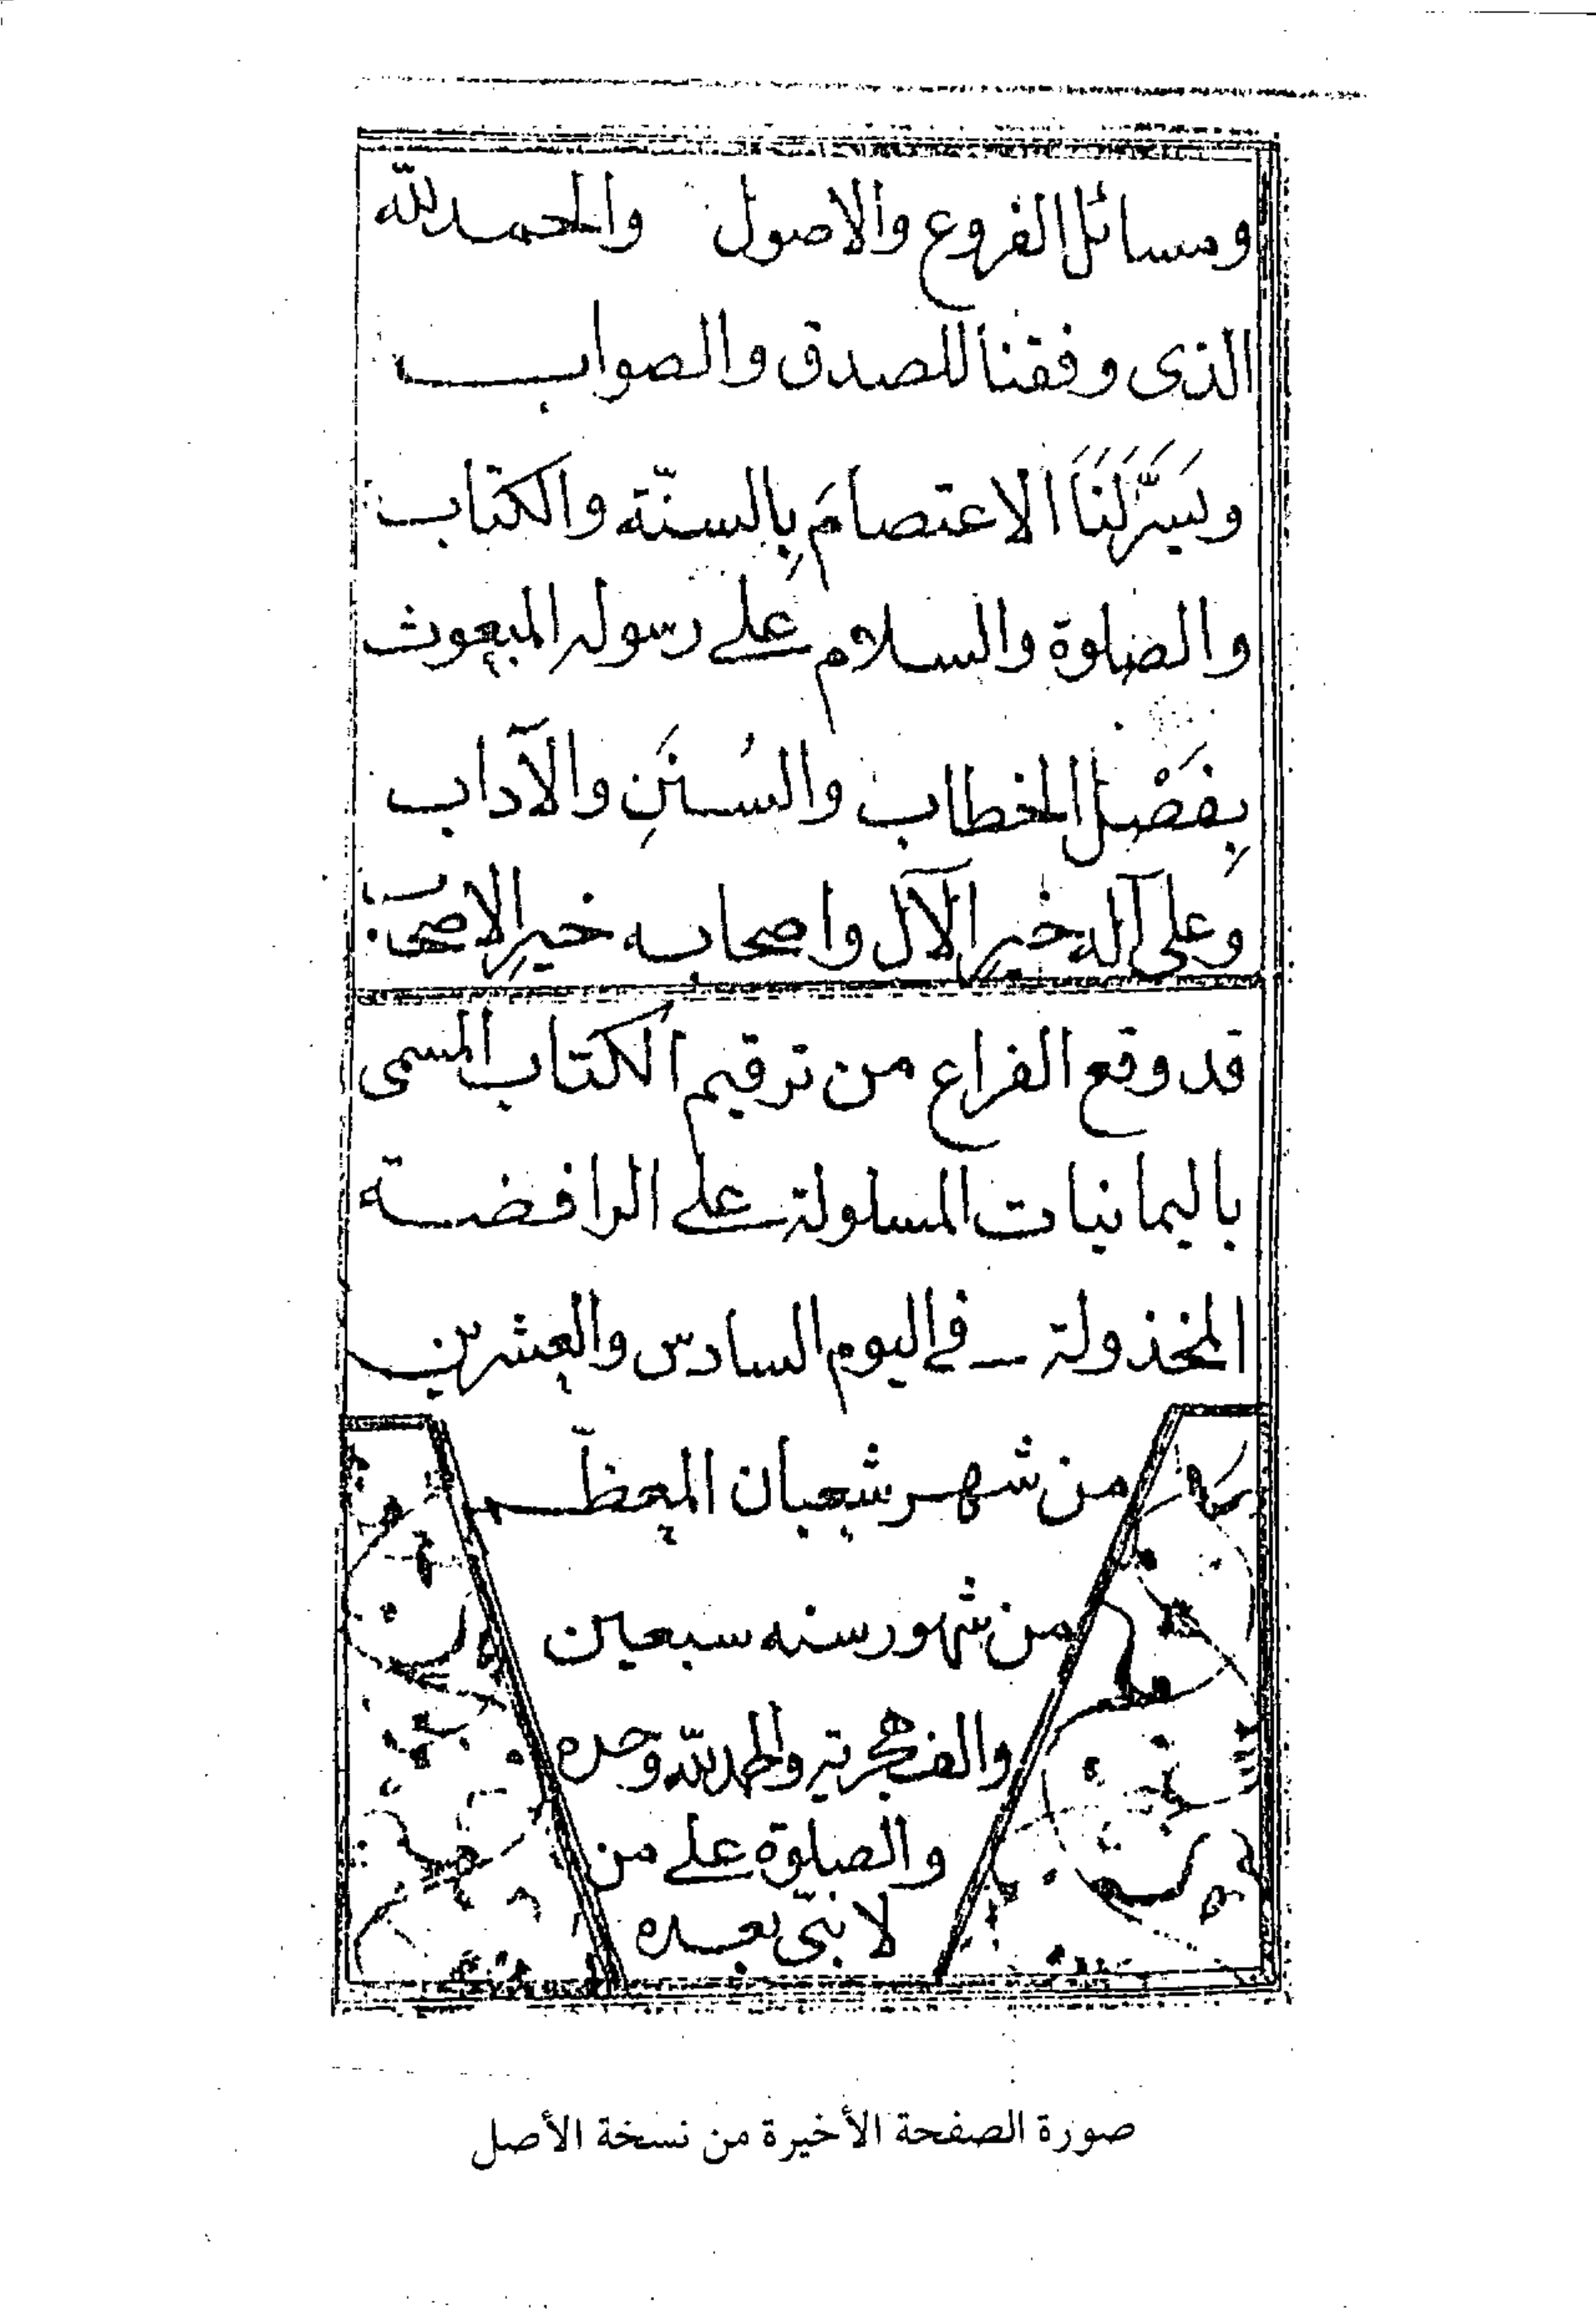 ومسائل الفروع والاصول والحمد لله
الذى وفقنا للصدق والصواب
ويَسَّرَ لَنَا الاعتصامَ بِالسنّة والكتاب
والصلوة والسلام على رسوله المبعوث
بِفَصْل الخطاب والسُنَنِ والآداب
وعلى آله خيرِ الآل واصحابه خيرِ الاصحاب
قد وقع الفراغ من ترقيم الكتاب المسمى
باليمانيات المسلولة على الرافضة
المخذولة فى اليوم السادس والعشرين
من شهر شعبان المعظّم
من شهور سنه سبعين
والف هجرية والحمد للّه وحده
والصلوة على من
لا نبيّ بعده
صورة الصفحة الأخيرة من نسخة الأصل